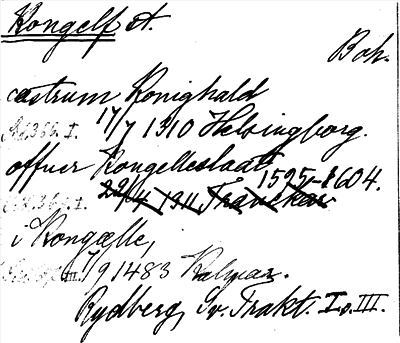 Kongelf st.
Boh.
castrum Konighald
17/7 1310 Helsingborg.
offner Kongelleslaat 1595-1604.
22/4 1311
i Kongælle,
7/9 1483 Kalmar.
Rydberg, Sv. Trakt. I o. III.